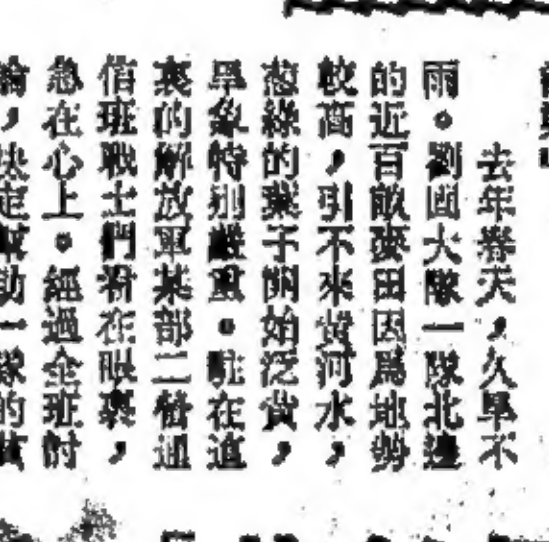 去年春天，久旱不
雨。劉固大隊一隊北邊
的近百畝麥田因爲地勢
較高，引不來黄河水，
葱綠的葉子開始泛黄，
旱象特别嚴重。駐在這
裏的解放軍某部二營通
信班戰士們看在眼裏，
急在心上。經過全班討
論，決定幫助一隊的